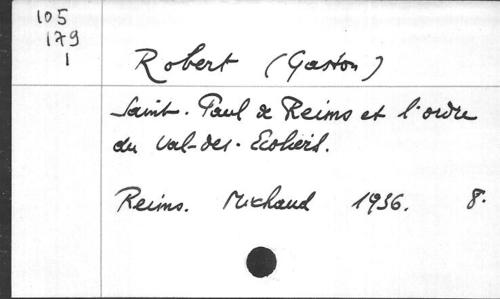 105
179
1
Robert (Gaston)
Saint-Paul de Reims et l'ordre
du Val-des-Ecoliers.
Reims. Michaud 1936. 8.